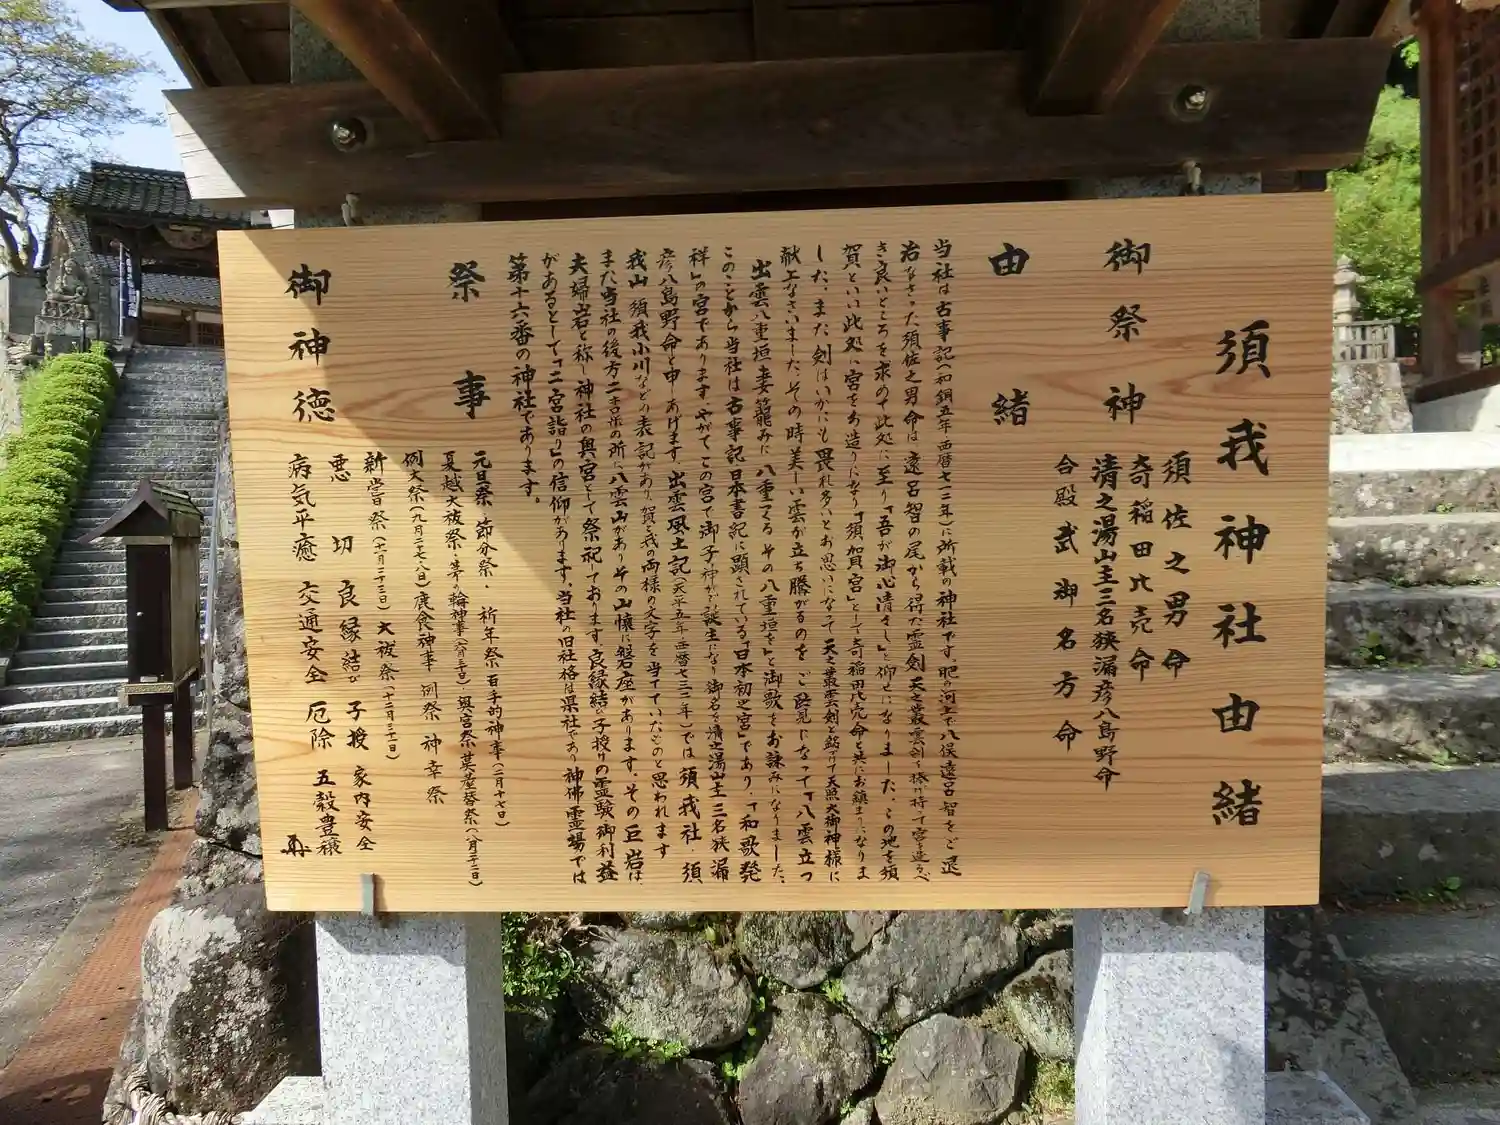 須我神社由緒
御祭神
須佐之男命
奇稲田比売命
清之湯山主三名狭漏彦八島野命
合殿 武御名方命
由緒
当社は古事記(和銅五年西暦七一二年)に所載の神社です。肥の河上で八俣遠呂智をご退
治なさった須佐之男命は、遠呂智の尾から得た霊剣天之叢雲剣を捧げ持って宮を造るべ
き良いところを求めて此処に至り「吾が御心清々し」と仰せになりました。この地を須
賀といい此処に宮をお造りになり「須賀宮」として奇稲田比売命と共にお鎮まりになりま
した。また剣はいかにも畏れ多いとお思いになって天之叢雲剣と銘づけて天照大御神様に
献上なさいました。その時美しい雲が立ち騰がるのをご覧になって「八雲立つ
出雲八重垣妻籠みに八重垣つくるその八重垣を」と御歌をお詠みになりました。
このことから当社は古事記日本書紀に顕されている「日本初之宮」であり、「和歌発
祥」の宮であります。やがてこの宮で御子神がご誕生になり御名を清之湯山主三名狭漏
彦八島野命と申しあげます。出雲風土記(天平五年西暦七三三年)では須我社・須
我山・須我小川などの表記があり、賀と我の両様の文字を当てていたものと思われます
また当社の後方二キロ米の所に八雲山があり、その山懐に磐座があります。その巨岩は、
夫婦岩と称し神社の奥宮として祭祀ております。良縁結び子授けの霊験御利益
があるとして「二宮詣り」の信仰があります。当社の旧社格は県社であり神佛霊場では
第十六番の神社であります。
祭事
元旦祭 節分祭・祈年祭 百手的神事(二月十七日)
夏越大祓祭・茅の輪神事(六月三十日)・奥宮祭 茣蓙替祭(八月二十二日)
例大祭(九月二十八日)鹿食神事 例祭 神幸祭
新嘗祭(十一月二十三日)大祓祭(十二月三十一日)
御神徳
悪切 良縁結び 子授 家内安全
病気平癒 交通安全 厄除 五穀豊穣